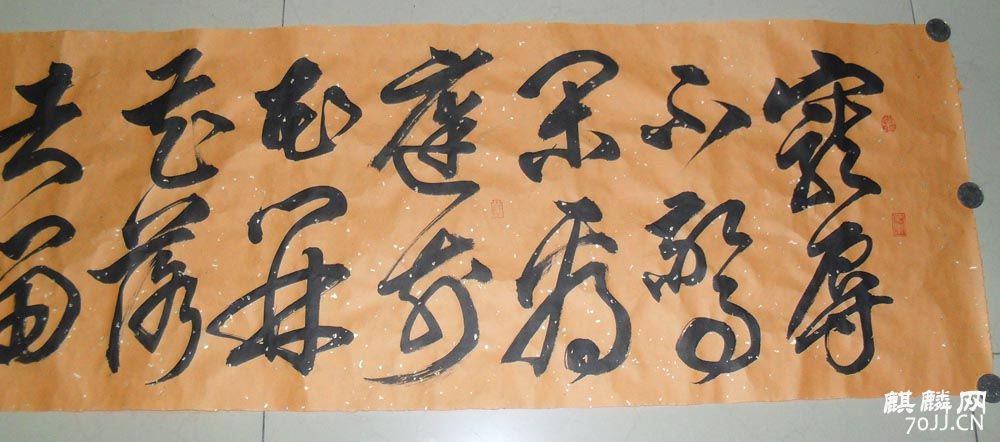 宠辱
不惊
闲看
庭前
花开
花落
去留
麒麟网
70JJ.CN